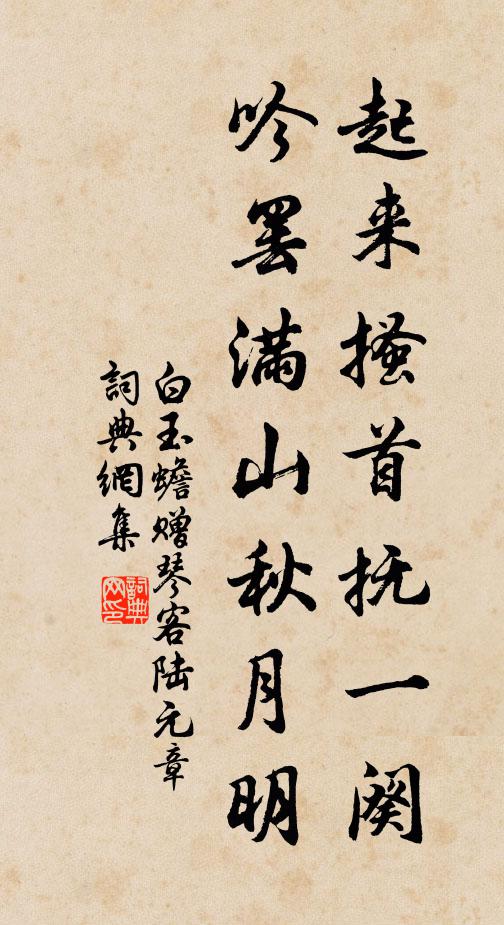 起来搔首抚一阕
吟罢满山秋月明
白玉蟾赠琴客陆元章
詞典網集
詞典网印